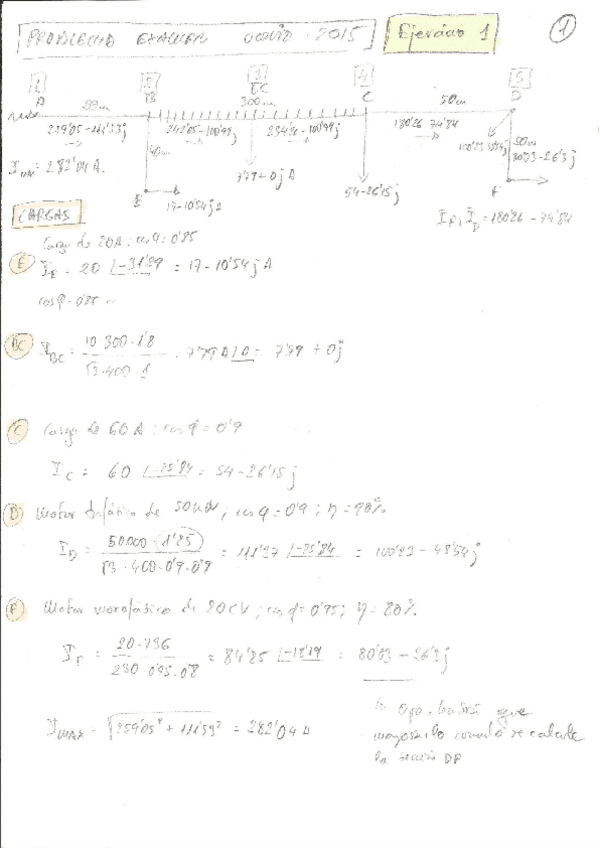 PROBLEMA EXAMEN JUNIO 2015
Ejercicio 1
1
1 2 3 4 5
A B BC C D
300m 50m
259'05-111'53j 242'05-100'99j 234'26-100'99j 180'26-74'84
I MAX = 282'04 A.
50m
80'03-26'3j
7'79+0j A
E
17-10'54j A
54-26'15j
F
I F + I D = 180'26-74'84
CARGAS
Carga de 20A: cos φ = 0'85
E I E = 20 ∟-31'79 = 17-10'54j A
cos φ = 0'85
BC I BC = 10·300·1'8 / √3·400·1 = 7'79 A ∟0 = 7'79 + 0j
C Carga de 60A: cos φ = 0'9
I C = 60 ∟-25'84 = 54-26'15j
D Motor trifásico de 50kW; cos φ = 0'9; η = 90%.
I D = 50000 (1'25) / √3·400·0'9·0'9 = 111'37 ∟-25'84 = 100'23-48'54j
F Motor monofásico de 20CV; cos φ = 0'95; η = 80%.
I F = 20·736 / 230·0'95·0'8 = 84'25 ∟-18'19 = 80'03-26'3j
I MAX = √259'05²+111'53² = 282'04 A
que
mayorarlo cuando se calcule
la sección DF